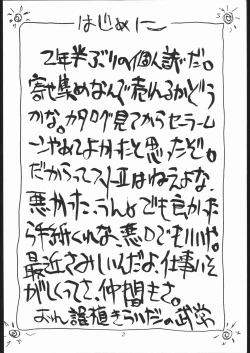 はじめに
2年半ぶりの個人誌だ。
寄せ集めなんで売れるかどう
かな。カタログ見てからセーラームー
ンやめてよかったと思ったぞ。
だからってストIIはねえよな。
悪かった、うんとでも良かった
ら手紙くれな、悪口でもいいや。
最近さみしいんだよ、仕事いそ
がしくってさ、仲間もさ。
おれ誤植きらいだの武学